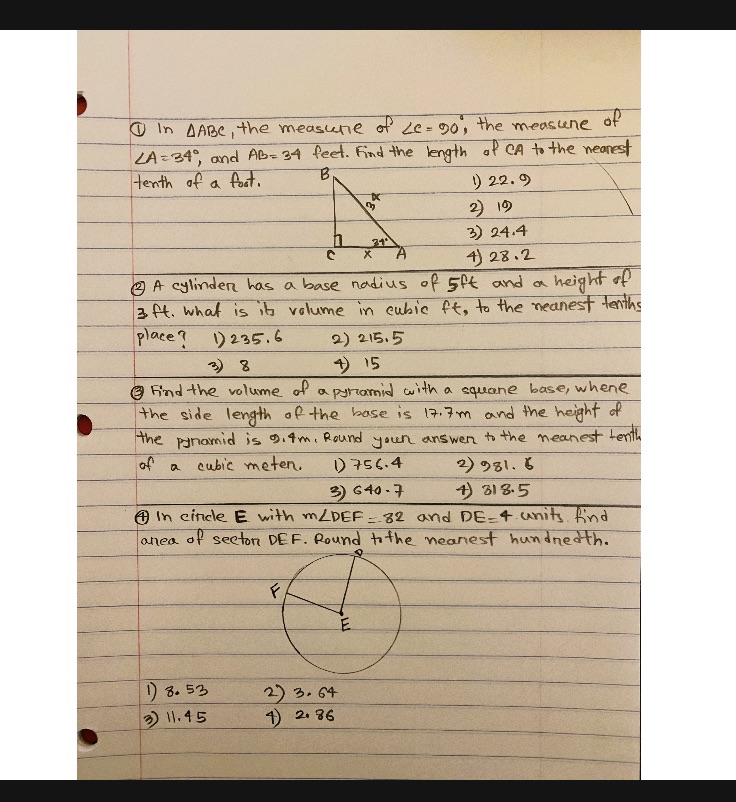 ① In ΔABC, the measure of ∠C = 90°, the measure of
∠A = 34°, and AB = 34 feet. Find the length of CA to the nearest
tenth of a foot.
B
34
34°
C x A
1) 22.9
2) 19
3) 24.4
4) 28.2
② A cylinder has a base radius of 5ft and a height of
3 ft. what is its volume in cubic ft, to the nearest tenths
place? 1) 235.6 2) 215.5
3) 8 4) 15
③ Find the volume of a pyramid with a square base, where
the side length of the base is 17.7m and the height of
the pyramid is 9.4m. Round your answer to the nearest tenth
of a cubic meter. 1) 756.4 2) 981.6
3) 640.7 4) 818.5
④ In circle E with m∠DEF = 82 and DE = 4 units find
area of sector DEF. Round to the nearest hundredth.
D
F
E
1) 8.53 2) 3.64
3) 11.45 4) 2.86